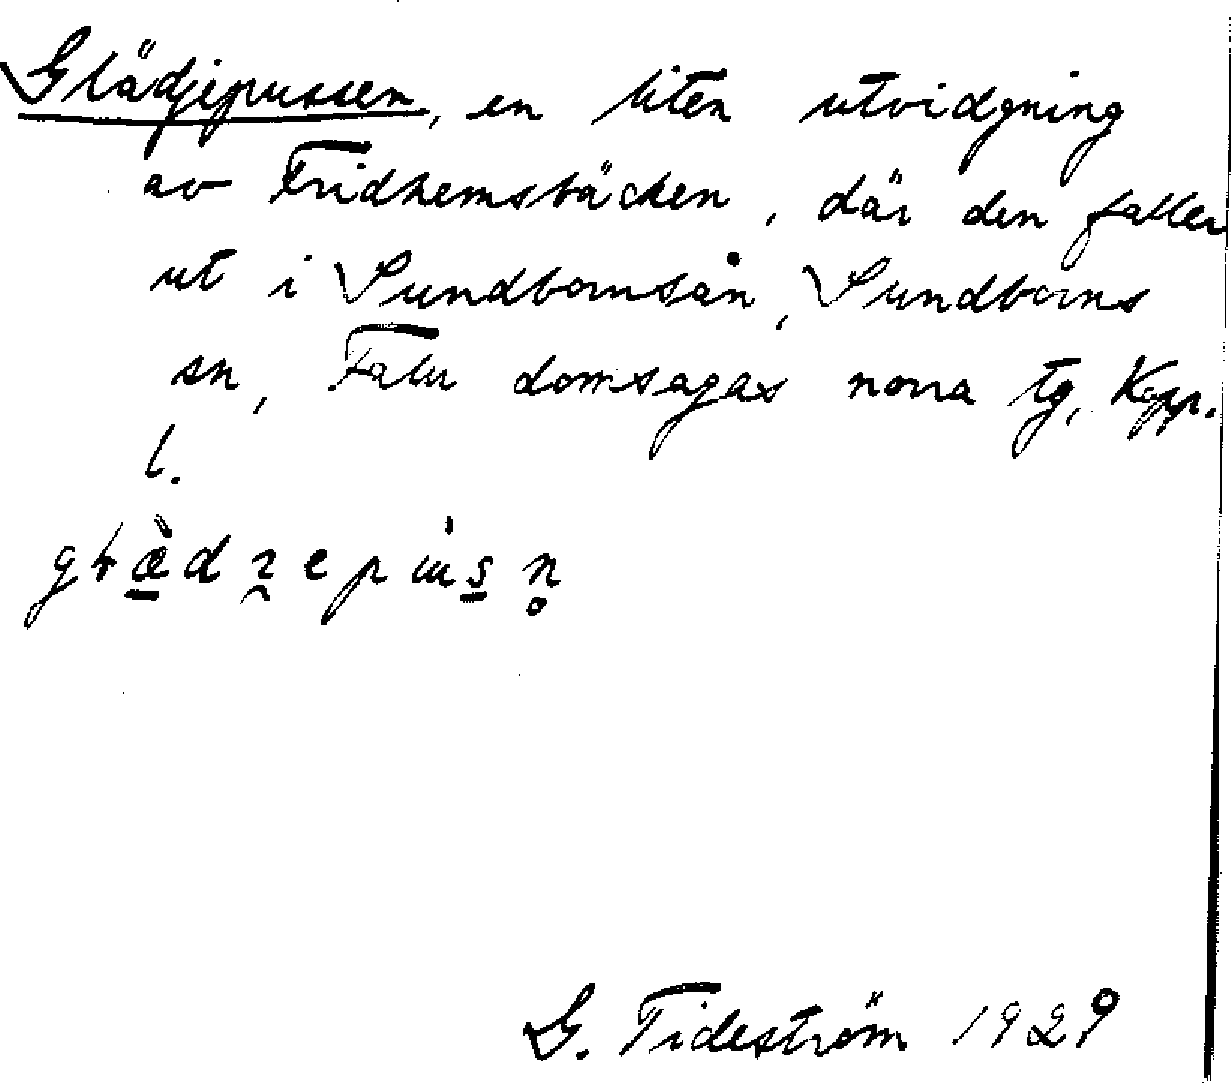 Glädjepussen, en liten utvidgning
av Fridhemsbäcken, där den faller
ut i Sundbornsån, Sundborns
sn, Falu domsagas norra tg, Kopp.
l.
G. Tideström 1929